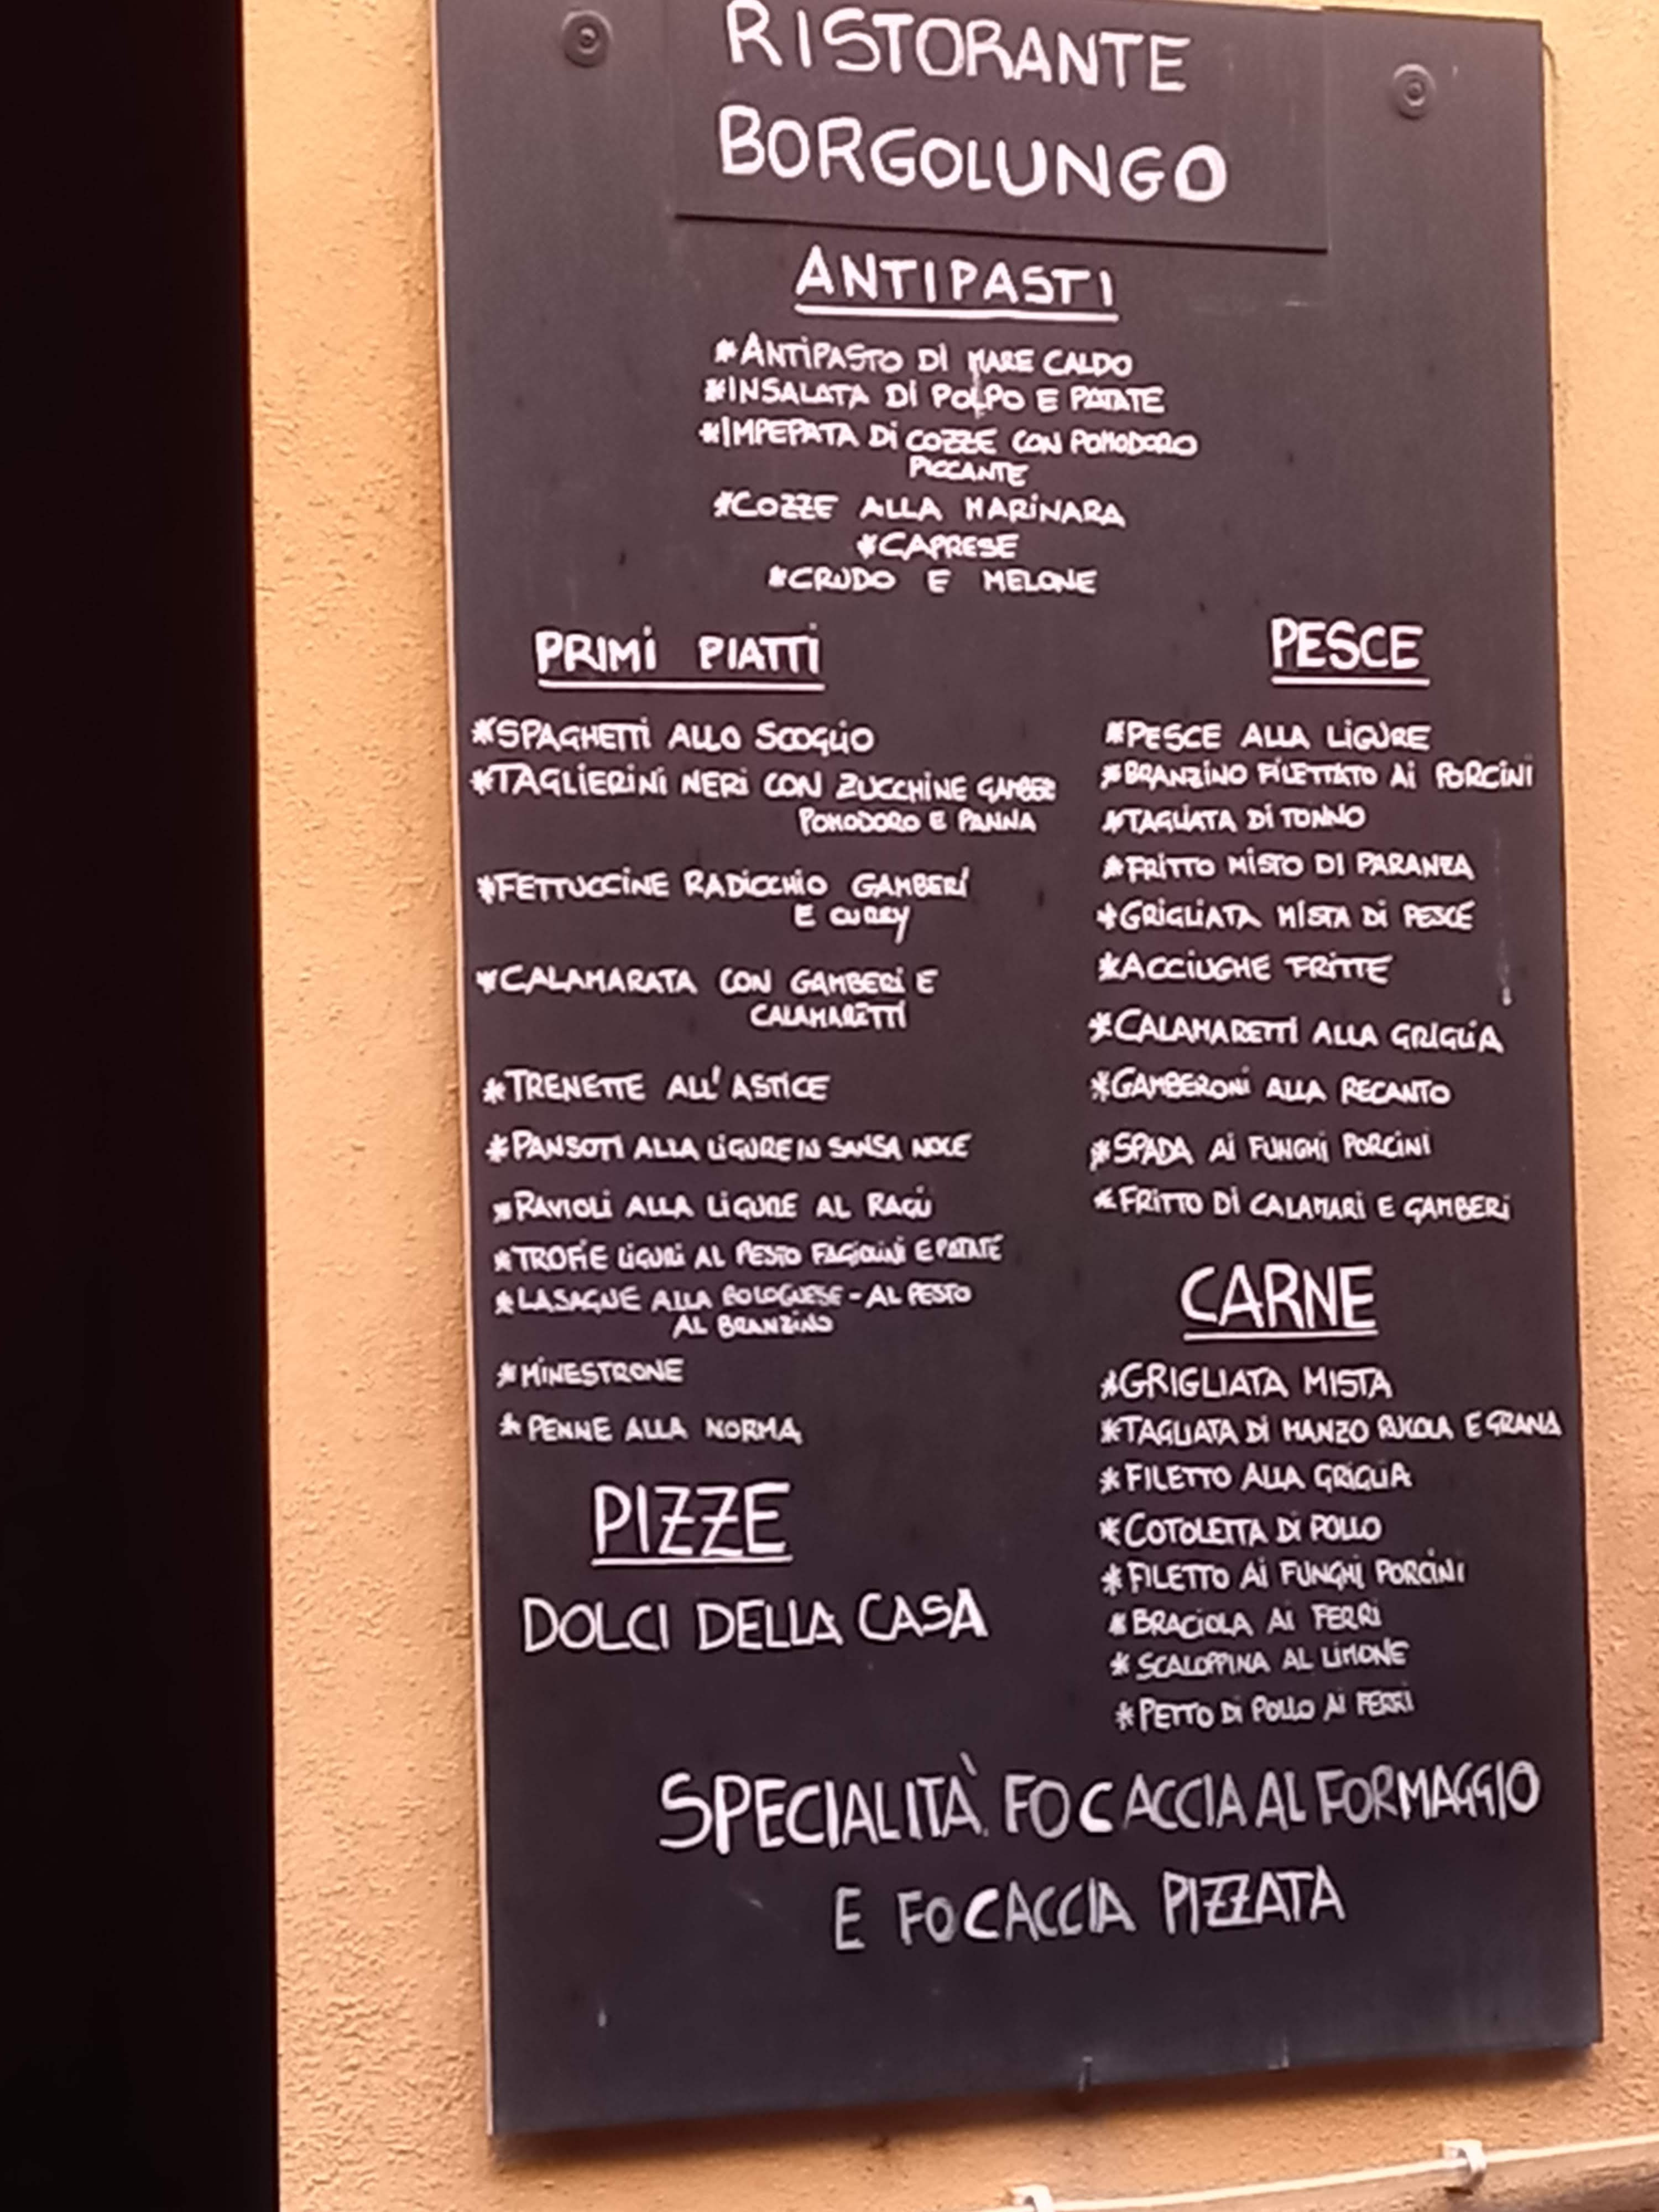 RISTORANTE
BORGOLUNGO
ANTIPASTI
*ANTIPASTO DI MARE CALDO
*INSALATA DI POLPO E PATATE
*IMPEPATA DI COZZE CON POMODORO
PICCANTE
*COZZE ALLA MARINARA
*CAPRESE
*CRUDO E MELONE
PRIMI PIATTI
*SPAGHETTI ALLO SCOGLIO
*TAGLIERINI NERI CON ZUCCHINE GAMBERI
POMODORO E PANNA
*FETTUCCINE RADICCHIO GAMBERI
E CURRY
*CALAMARATA CON GAMBERI E
CALAMARETTI
*TRENETTE ALL'ASTICE
*PANSOTI ALLA LIGURE IN SANSA NOCE
*RAVIOLI ALLA LIGURE AL RAGÙ
*TROFIE LIGURI AL PESTO FAGIOLINI E PATATE
*LASAGNE ALLA BOLOGNESE - AL PESTO
AL BRANZINO
*MINESTRONE
*PENNE ALLA NORMA
PIZZE
DOLCI DELLA CASA
PESCE
*PESCE ALLA LIGURE
*BRANZINO FILETTATO AI PORCINI
*TAGLIATA DI TONNO
*FRITTO MISTO DI PARANZA
*GRIGLIATA MISTA DI PESCE
*ACCIUGHE FRITTE
*CALAMARETTI ALLA GRIGLIA
*GAMBERONI ALLA RECANTO
*SPADA AI FUNGHI PORCINI
*FRITTO DI CALAMARI E GAMBERI
CARNE
*GRIGLIATA MISTA
*TAGLIATA DI MANZO RUCOLA E GRANA
*FILETTO ALLA GRIGLIA
*COTOLETTA DI POLLO
*FILETTO AI FUNGHI PORCINI
*BRACIOLA AI FERRI
*SCALOPPINA AL LIMONE
*PETTO DI POLLO AI FERRI
SPECIALITÀ FOCACCIA AL FORMAGGIO
E FOCACCIA PIZZATA